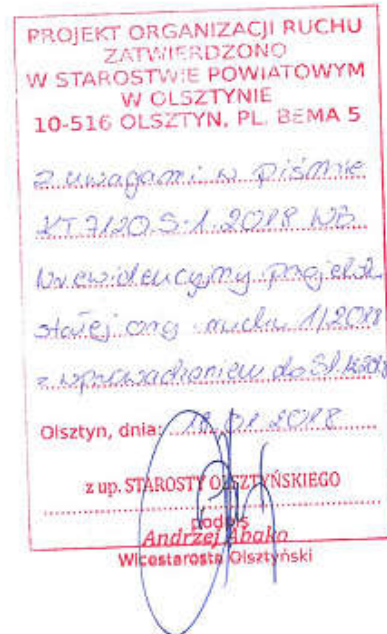 PROJEKT ORGANIZACJI RUCHU
ZATWIERDZONO
W STAROSTWIE POWIATOWYM
W OLSZTYNIE
10-516 OLSZTYN, PL. BEMA 5
z uwagami w piśmie
KT.7120.S-1.2018 WB
Nr ewidencyjny projektu
stałej org. ruchu 1/2018
z wprowadzeniem do
Olsztyn, dnia: 18.01.2018
z up. STAROSTY OLSZTYŃSKIEGO
podpis
Andrzej Abako
Wicestarosta Olsztyński